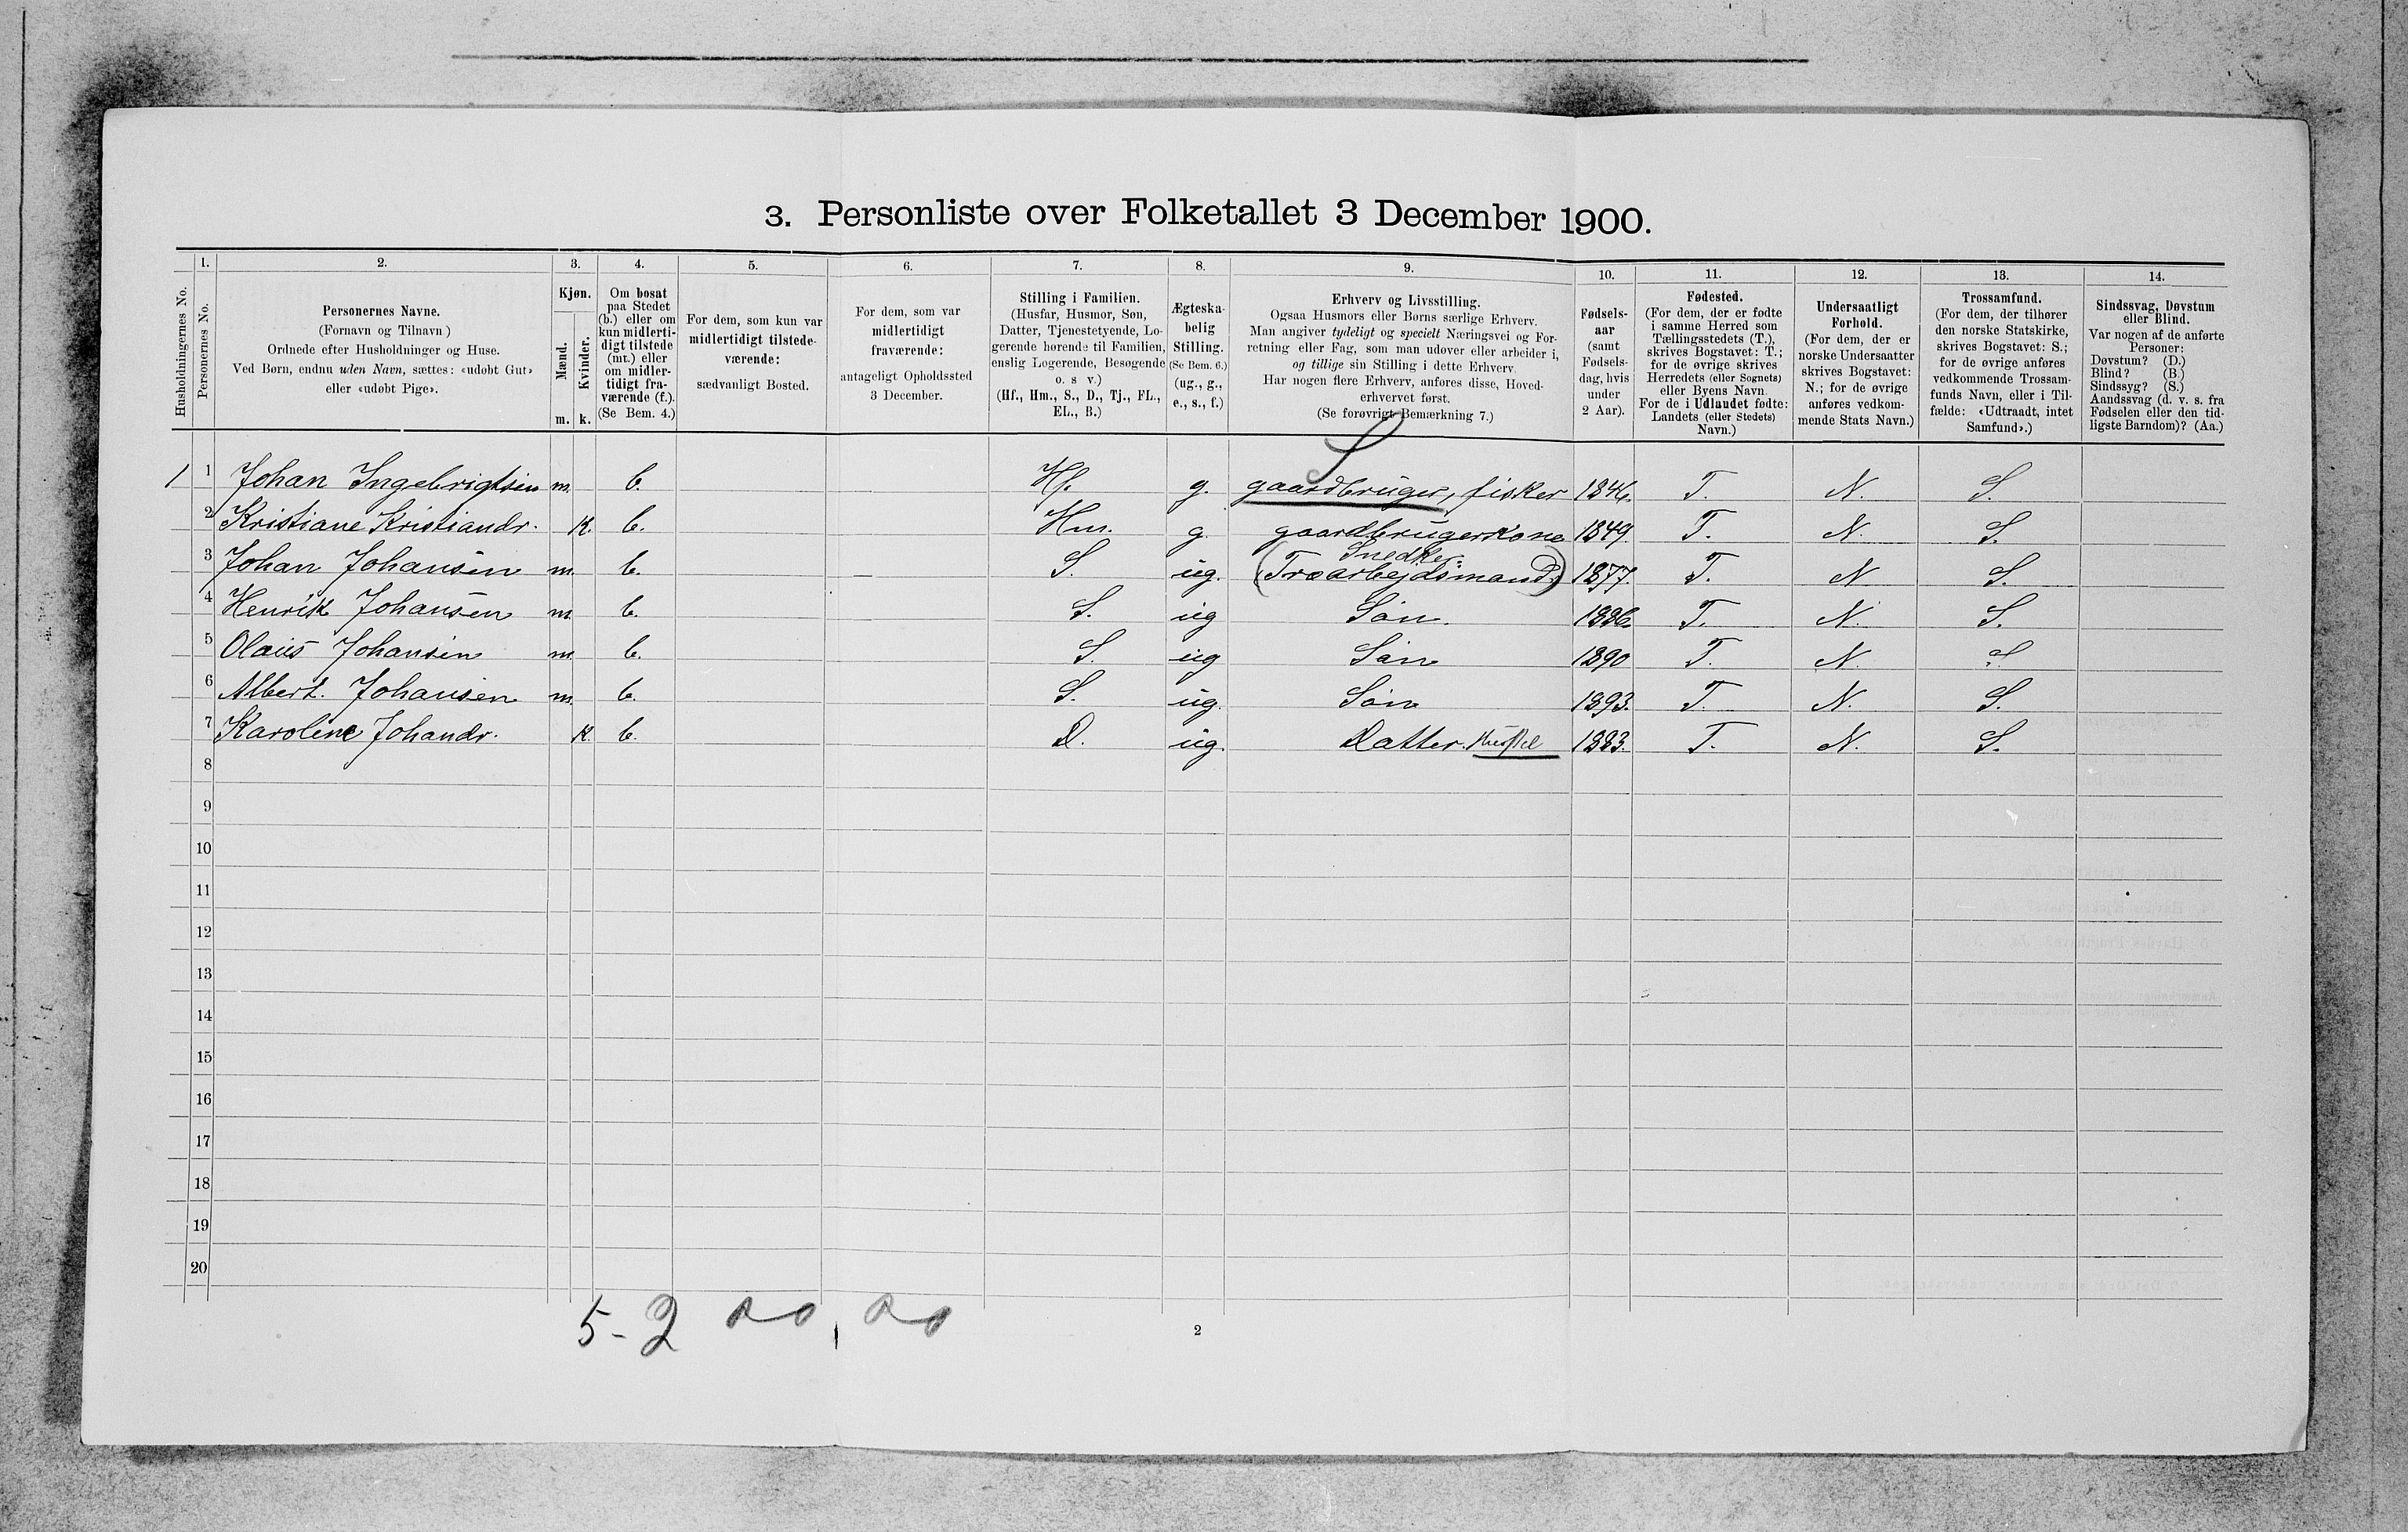 3. Personliste over Folketallet 3 December 1900.
Husholdningernes No.
1.
Personernes No.
2.
Personernes Navne.
(Fornavn og Tilnavn.)
Ordnede efter Husholdninger og Huse.
Ved Børn, endnu uden Navn, sættes: «udøbt Gut»
eller «udøbt Pige».
3.
Kjøn.
Mænd.
Kvinder.
m. k.
4.
Om bosat
paa Stedet
(b.) eller om
kun midlerti-
digt tilstede
(mt.) eller
om midler-
tidigt fra-
værende (f.).
(Se Bem. 4.)
5.
For dem, som kun var
midlertidigt tilstede-
værende:
sædvanligt Bosted.
6.
For dem, som var
midlertidigt
fraværende:
antageligt Opholdssted
3 December.
7.
Stilling i Familien.
(Husfar, Husmor, Søn,
Datter, Tjenestetyende, Lo-
gerende hørende til Familien,
enslig Logerende, Besøgende
o. s v.)
(Hf., Hm., S., D., Tj., FL.,
EL., B.)
8.
Ægteska-
belig
Stilling.
(Se Bem. 6.)
(ug., g.,
e., s., f.)
9.
Erhverv og Livsstilling.
Ogsaa Husmors eller Børns særlige Erhverv.
Man angiver tydeligt og specielt Næringsvei og For-
retning eller Fag, som man udøver eller arbeider i,
og tillige sin Stilling i dette Erhverv.
Har nogen flere Erhverv, anføres disse, Hoved-
erhvervet først.
(Se forøvrigt Bemærkning 7.)
10.
Fødsels-
aar
(samt
Fødsels-
dag, hvis
under
2 Aar).
11.
Fødested.
(For dem, der er fødte
i samme Herred som
Tællingsstedets (T.),
skrives Bogstavet: T.;
for de øvrige skrives
Herredets (eller Sognets)
eller Byens Navn.
For de i Udlandet fødte:
Landets (eller Stedets)
Navn.)
12.
Undersaatligt
Forhold.
(For dem, der er
norske Undersaatter
skrives Bogstavet:
N.; for de øvrige
anføres vedkom-
mende Stats Navn.)
13.
Trossamfund.
(For dem, der tilhører
den norske Statskirke,
skrives Bogstavet: S.;
for de øvrige anføres
vedkommende Trossam-
funds Navn, eller i Til-
fælde: «Udtraadt, intet
Samfund».)
14.
Sindssvag, Døvstum
eller Blind.
Var nogen af de anførte
Personer:
Døvstum? (D.)
Blind? (B.)
Sindssyg? (S.)
Aandssvag (d. v. s. fra
Fødselen eller den tid-
ligste Barndom)? (Aa.)
S
1 1 Johan Ingebrigtsen m. b. Hf. g. gaardbruger, fisker 1846. T. N. S.
2 Kristiane Kristiandr. K. b. Hm. g. gaardbrugerkone 1849. T. N. S.
Snedker.
3 Johan Johansen m. b. S. ug. (Træarbejdsmand.) 1877. T. N S.
4 Henrik Johansen m. b. S. ug Søn. 1886. T. N. S.
5 Olaus Johansen m. b. S. ug Søn 1890 T. N. S
6 Albert. Johansen m. b. S. ug. Søn 1893. T. N. S.
7 Karoline Johandr. K. b. D. ug. Datter. 1883. T. N. S.
8
9
10
11
12
13
14
15
16
17
18
19
20
5-2
2